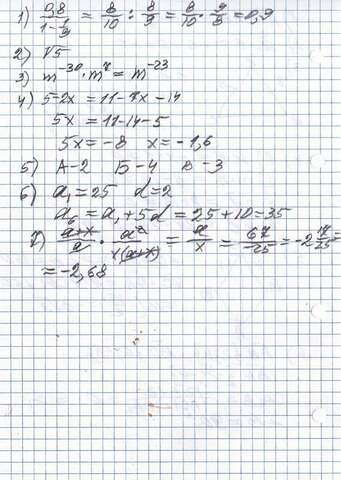 1) 0,8/(1-1/9) = 8/10 : 8/9 = 8/10 · 9/8 = 0,9
2) √5
3) m⁻³⁰ · m⁷ = m⁻²³
4) 5-2x = 11-7x-14
5x = 11-14-5
5x = -8 x = -1,6
5) А-2 Б-4 В-3
6) a₁ = 25 d = 2
a₆ = a₁ + 5d = 25 + 10 = 35
7) (a+x)/a · a²/(x(a+x)) = a/x = 67/-25 = -2 17/25 =
= -2,68